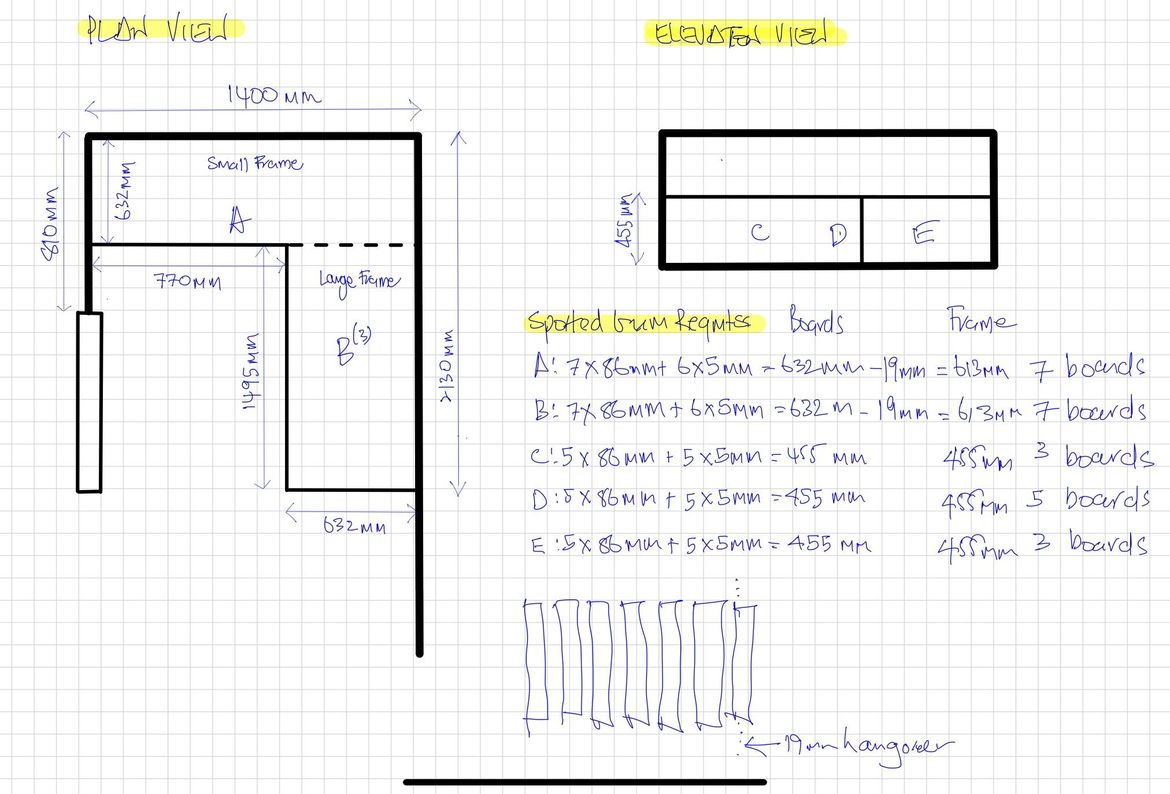 PLAN VIEW
1400mm
810mm
632mm
Small Frame
A
770mm
Large Frame
B(3)
1495mm
2130mm
632mm
ELEVATION VIEW
455mm
C D E
Spotted Gum Reqmtss Boards Frame
A: 7x86mm + 6x5mm = 632mm - 19mm = 613mm 7 boards
B: 7x86mm + 6x5mm = 632m - 19mm = 613mm 7 boards
C: 5x86mm + 5x5mm = 455mm 455mm 3 boards
D: 5x86mm + 5x5mm = 455mm 455mm 5 boards
E: 5x86mm + 5x5mm = 455mm 455mm 3 boards
19mm hangover